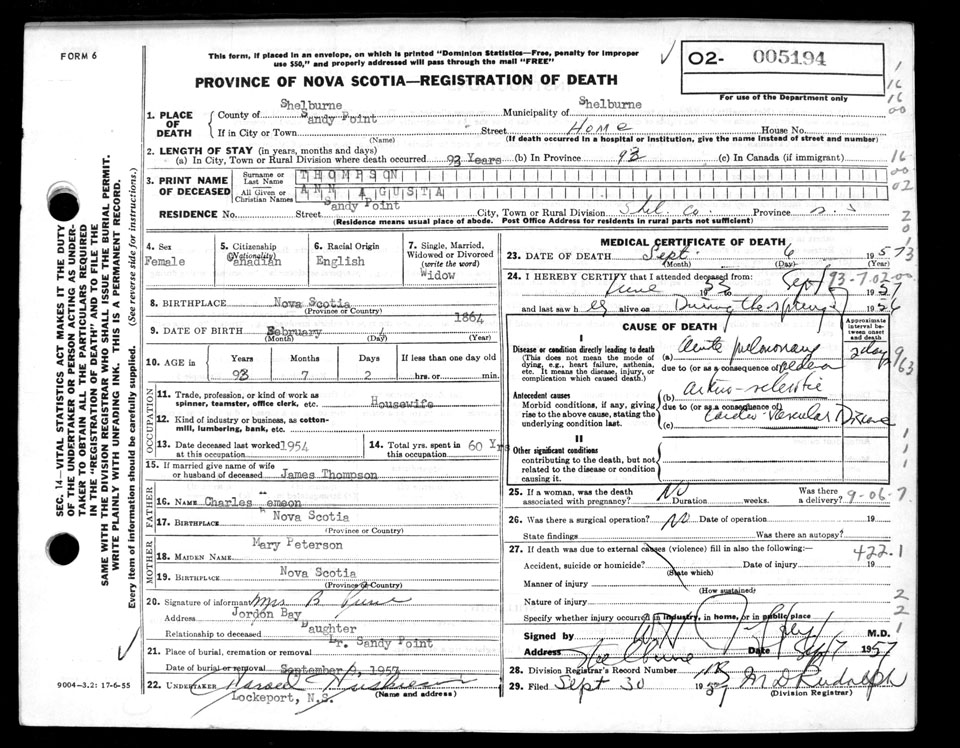 FORM 6
This form, if placed in an envelope, on which is printed "Dominion Statistics—Free, penalty for improper
use $50," and properly addressed will pass through the mail "FREE"
PROVINCE OF NOVA SCOTIA—REGISTRATION OF DEATH
O2- 005194
For use of the Department only
1. PLACE OF DEATH
County of Shelburne Municipality of Shelburne
If in City or Town Sandy Point Street Home House No.
(Name) (If death occurred in a hospital or institution, give the name instead of street and number)
2. LENGTH OF STAY (in years, months and days)
(a) In City, Town or Rural Division where death occurred 93 Years (b) In Province 93 (c) In Canada (if immigrant)
3. PRINT NAME OF DECEASED
Surname or Last Name THOMPSON
All Given or Christian Names ANN AGUSTA
RESIDENCE No. Street Sandy Point City, Town or Rural Division Shel. Co. Province n.s
(Residence means usual place of abode. Post Office Address for residents in rural parts not sufficient)
4. Sex Female
5. Citizenship (Nationality) Canadian
6. Racial Origin English
7. Single, Married, Widowed or Divorced (write the word) Widow
8. BIRTHPLACE Nova Scotia
(Province or Country)
9. DATE OF BIRTH February 4 1864
(Month) (Day) (Year)
10. AGE IN Years Months Days If less than one day old
93 7 2 hrs. or min.
OCCUPATION
11. Trade, profession, or kind of work as spinner, teamster, office clerk, etc. Housewife
12. Kind of industry or business, as cotton-mill, lumbering, bank, etc.
13. Date deceased last worked at this occupation 1954
14. Total yrs. spent in this occupation 60 Yrs
15. If married give name of wife or husband of deceased James Thompson
FATHER
16. NAME Charles
17. Birthplace Nova Scotia
(Province or Country)
MOTHER
18. MAIDEN NAME Mary Peterson
19. BIRTHPLACE Nova Scotia
(Province or Country)
20. Signature of informant Mrs B
Address Jordon Bay
Relationship to deceased Daughter
21. Place of burial, cremation or removal Lr. Sandy Point
Date of burial or removal September 1957
22. UNDERTAKER Harold
(Name and address)
Lockeport, N.S.
9004-3.2: 17-6-55
SEC. 14—VITAL STATISTICS ACT MAKES IT THE DUTY
OF THE UNDERTAKER OR PERSON ACTING AS UNDER-
TAKER TO OBTAIN ALL THE PARTICULARS REQUIRED
IN THE "REGISTRATION OF DEATH" AND TO FILE THE
SAME WITH THE DIVISION REGISTRAR WHO SHALL ISSUE THE BURIAL PERMIT.
WRITE PLAINLY WITH UNFADING INK. THIS IS A PERMANENT RECORD.
Every item of information should be carefully supplied. (See reverse side for instructions.)
MEDICAL CERTIFICATE OF DEATH
23. DATE OF DEATH Sept. 6 1957
(Month) (Day) (Year)
24. I HEREBY CERTIFY that I attended deceased from:
June 1953 Sept 1957
and last saw h er alive on During the spring 1956
93-7-02-00
CAUSE OF DEATH
Approximate interval between onset and death
I
Disease or condition directly leading to death
(This does not mean the mode of dying, e.g., heart failure, asthenia, etc. It means the disease, injury, or complication which caused death.)
(a) Acute pulmonary oedema 2 days
due to (or as a consequence of)
Antecedent causes
Morbid conditions, if any, giving rise to the above cause, stating the underlying condition last.
(b) arterio-sclerotic
due to (or as a consequence of)
(c) Cardio-Vascular Disease
II
Other significant conditions
contributing to the death, but not related to the disease or condition causing it.
25. If a woman, was the death associated with pregnancy? NO Duration weeks. Was there a delivery?
9-06-7
26. Was there a surgical operation? NO Date of operation 19
State findings Was there an autopsy?
27. If death was due to external causes (violence) fill in also the following:—
Accident, suicide or homicide? Date of injury 19
(State which)
422.1
Manner of injury
(How sustained)
Nature of injury
Specify whether injury occurred in industry, in home, or in public place
Signed by M.D.
Address Shelburne Date Sept 7 1957
28. Division Registrar's Record Number
29. Filed Sept 30 1957 M D Rudolph
(Division Registrar)